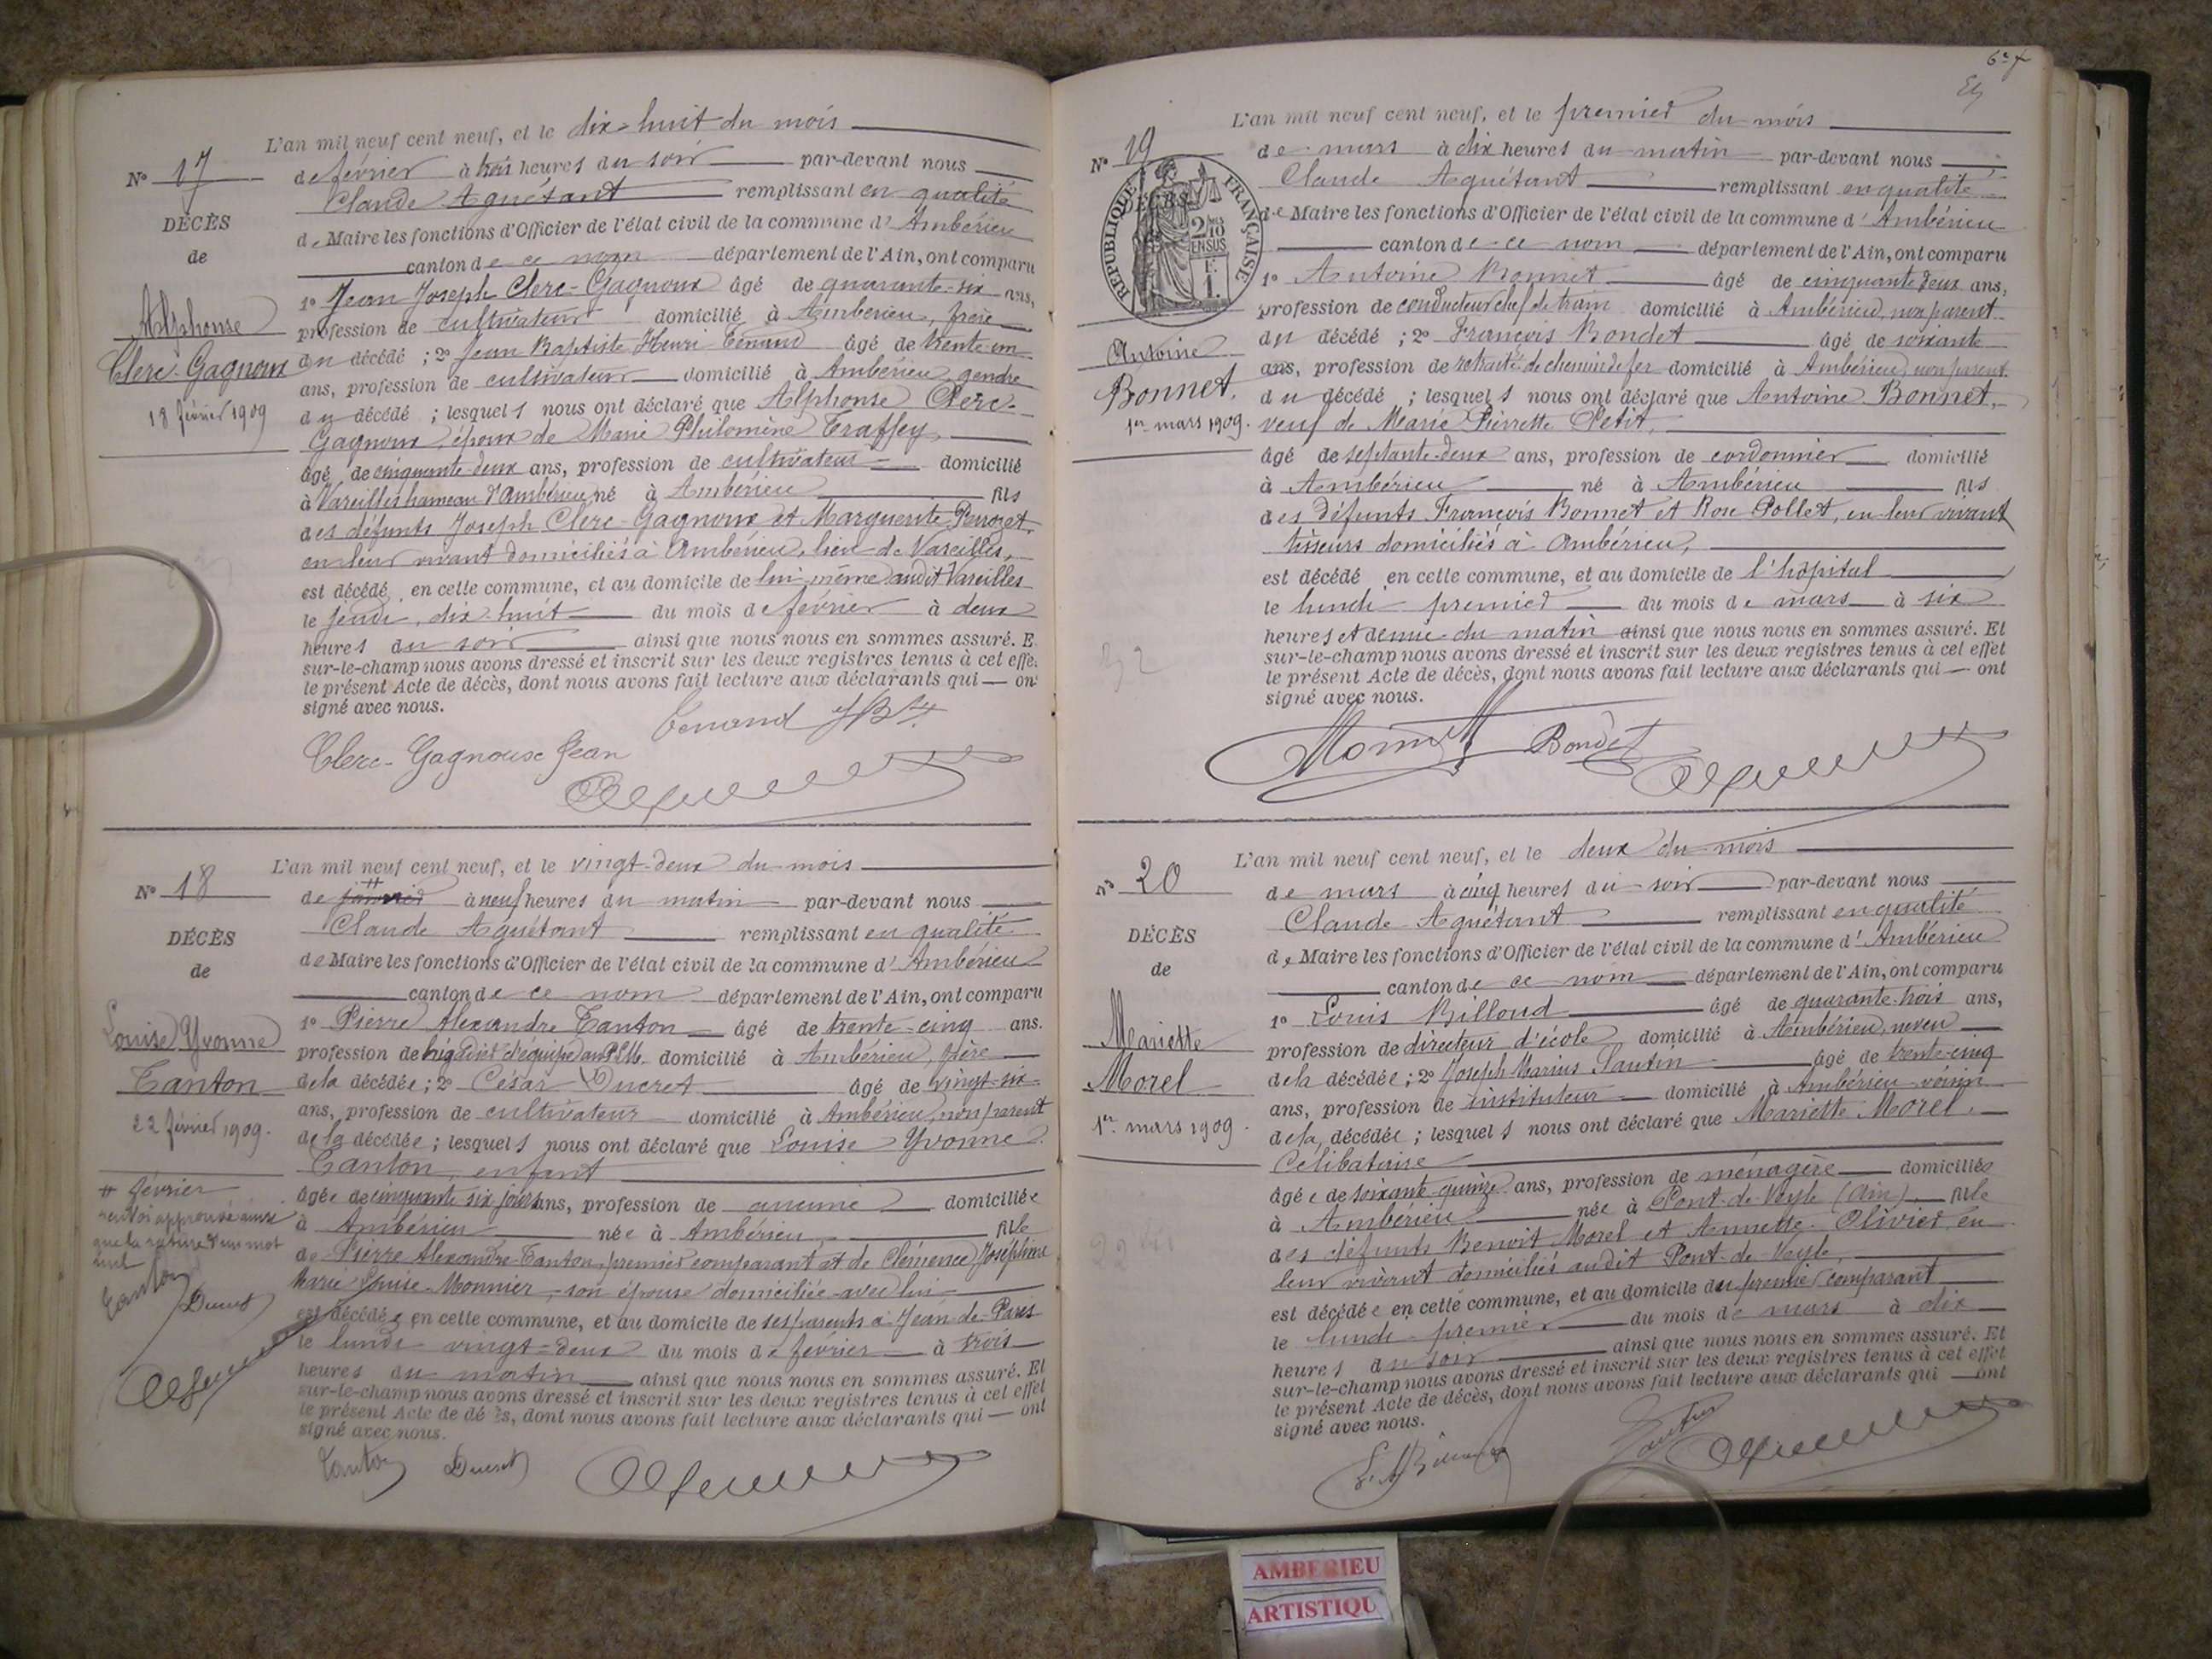 L'an mil neuf cent neuf, et le dix-huit du mois
N° 17
de février à trois heures du soir par-devant nous
Claude Aguétant remplissant en qualité
DÉCÈS
de Maire les fonctions d'Officier de l'état civil de la commune d'Ambérieu
de
canton de ce nom département de l'Ain, ont comparu
1° Jean Joseph Clerc-Gagnoux âgé de quarante-six ans,
Alphonse
profession de cultivateur domicilié à Ambérieu, frère
Clerc-Gagnoux
du décédé ; 2° Jean Baptiste Henri Tenand âgé de trente-un
ans, profession de cultivateur domicilié à Ambérieu, gendre
18 février 1909
du décédé ; lesquels nous ont déclaré que Alphonse Clerc-
Gagnoux, époux de Marie Philomène Traffey,
âgé de cinquante-deux ans, profession de cultivateur domicilié
à Vareilles hameau d'Ambérieu, né à Ambérieu fils
des défunts Joseph Clerc-Gagnoux et Marguerite
en leur vivant domiciliés à Ambérieu, lieu de Vareilles,
est décédé en cette commune, et au domicile de lui-même audit Vareilles
le jeudi, dix-huit du mois de février à deux
heures du soir ainsi que nous nous en sommes assuré. E
sur-le-champ nous avons dressé et inscrit sur les deux registres tenus à cet effe
le présent Acte de décès, dont nous avons fait lecture aux déclarants qui — on
signé avec nous.
Tenand JBte
Clerc-Gagnoux Jean
L'an mil neuf cent neuf, et le vingt-deux du mois
N° 18
de janvier à neuf heures du matin par-devant nous
Claude Aguétant remplissant en qualité
DÉCÈS
de Maire les fonctions d'Officier de l'état civil de la commune d'Ambérieu
de
canton de ce nom département de l'Ain, ont comparu
1° Pierre Alexandre Tanton âgé de trente-cinq ans.
Louise Yvonne
profession de brigadier d'équipe au P.L.M. domicilié à Ambérieu, père
Tanton
de la décédée ; 2° César Ducret âgé de vingt-six
ans, profession de cultivateur domicilié à Ambérieu, non parent
22 février 1909.
de la décédée ; lesquels nous ont déclaré que Louise Yvonne
Tanton, enfant
# février
renvoi approuvé ainsi
que la rature d'un mot
nul
Tanton
Ducret
âgée de cinquante six jours ans, profession de aucune domiciliée
à Ambérieu née à Ambérieu, fille
de Pierre Alexandre Tanton, premier comparant et de Clémence Joséphine
Marie Louise Monnier, son épouse domiciliée avec lui
est décédée en cette commune, et au domicile de ses parents à Jean-de-Paris
le lundi vingt-deux du mois de février à trois
heures du matin ainsi que nous nous en sommes assuré. Et
sur-le-champ nous avons dressé et inscrit sur les deux registres tenus à cet effet
le présent Acte de dé ès, dont nous avons fait lecture aux déclarants qui — ont
signé avec nous.
Tanton Ducret
L'an mil neuf cent neuf, et le premier du mois
N° 19
de mars à dix heures du matin par-devant nous
Claude Aguétant remplissant en qualité
RÉPUBLIQUE FRANÇAISE
2/10 EN SUS
1 F.
de Maire les fonctions d'Officier de l'état civil de la commune d'Ambérieu
canton de ce nom département de l'Ain, ont comparu
1° Antoine Monnet âgé de cinquante deux ans,
profession de conducteur chef de train domicilié à Ambérieu, non parent
Antoine
du décédé ; 2° François Bondet âgé de soixante
ans, profession de retraité de chemin de fer domicilié à Ambérieu, non parent
Bonnet.
du décédé ; lesquels nous ont déclaré que Antoine Bonnet,
1er mars 1909.
veuf de Marie Pierrette Petit,
âgé de septante-deux ans, profession de cordonnier domicilié
à Ambérieu né à Ambérieu fils
des défunts François Bonnet et Rose Pollet, en leur vivant
tisseurs domiciliés à Ambérieu,
est décédé en cette commune, et au domicile de l'hôpital
le lundi premier du mois de mars à six
heures et demie du matin ainsi que nous nous en sommes assuré. Et
sur-le-champ nous avons dressé et inscrit sur les deux registres tenus à cet effet
le présent Acte de décès, dont nous avons fait lecture aux déclarants qui — ont
signé avec nous.
Monnet Bondet
L'an mil neuf cent neuf, et le deux du mois
N° 20
de mars à cinq heures du soir par-devant nous
Claude Aguétant remplissant en qualité
DÉCÈS
de Maire les fonctions d'Officier de l'état civil de la commune d'Ambérieu
de
canton de ce nom département de l'Ain, ont comparu
1° Louis Billoud âgé de quarante-trois ans,
Mariette
profession de directeur d'école domicilié à Ambérieu, neveu
Morel
de la décédée ; 2° Joseph Marius Santin âgé de trente-cinq
ans, profession de instituteur domicilié à Ambérieu voisin
1er mars 1909.
de la décédée ; lesquels nous ont déclaré que Mariette Morel,
Célibataire
âgée de soixante-quinze ans, profession de ménagère domiciliée
à Ambérieu née à Pont-de-Veyle (Ain) fille
des défunts Benoit Morel et Annette Olivier, en
leur vivant domiciliés audit Pont-de-Veyle,
est décédée en cette commune, et au domicile du premier comparant
le lundi premier du mois de mars à dix
heures du soir ainsi que nous nous en sommes assuré. Et
sur-le-champ nous avons dressé et inscrit sur les deux registres tenus à cet effet
le présent Acte de décès, dont nous avons fait lecture aux déclarants qui — ont
signé avec nous.
AMBERIEU
ARTISTIQU